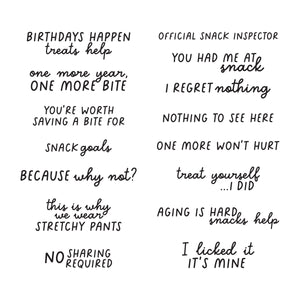 BIRTHDAYS HAPPEN
treats help
one more year,
ONE MORE BITE
YOU'RE WORTH
SAVING A BITE FOR
SNACK goals
BECAUSE why not?
this is why
we wear
STRETCHY PANTS
NO SHARING
REQUIRED
OFFICIAL SNACK INSPECTOR
YOU HAD ME AT
snack
I REGRET nothing
NOTHING TO SEE HERE
ONE MORE WON'T HURT
treat yourself
...I DID
AGING IS HARD
snacks help
I licked it
IT'S MINE